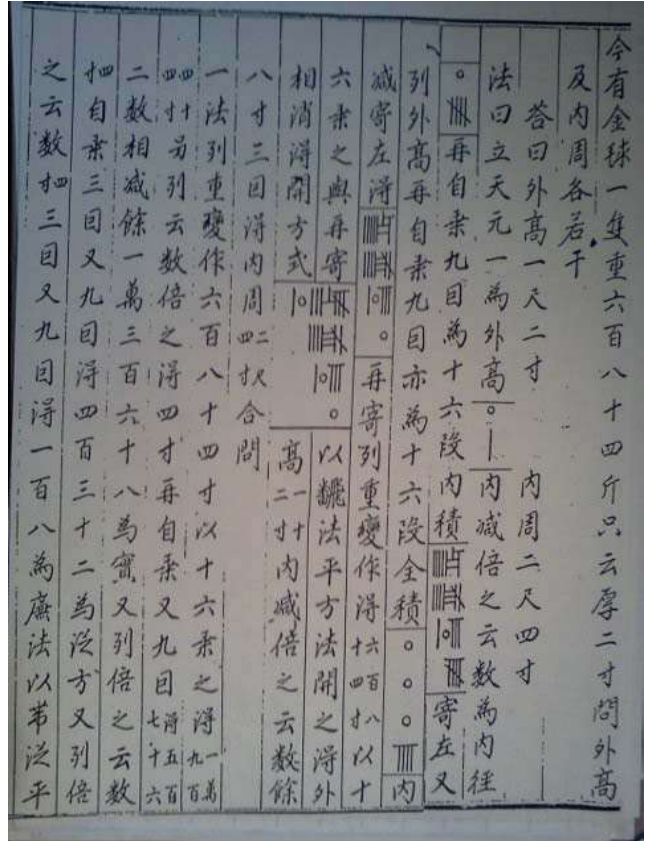 今有金球一隻重六百八十四斤只云厚二寸問外高
及内周各若干
答曰外高一尺二寸 内周二尺四寸
法曰立天元一為外高〇一内減倍之云数為内径
〇 再自乘九因為十六段内積 寄左又
列外高再自乘九因亦為十六段全積〇〇〇 内
减寄左得 再寄列重變作得六百八十四寸以十
六乘之與再寄
相消得開方式
以飜法平方法開之得外
高一十二寸内減倍之云数餘
八寸三因得内周二尺四寸合問
一法列重變作六百八十四寸以十六乘之得一萬九百
四十四寸另列云数倍之得四寸再自乘又九因得五百七十六
二数相减餘一萬三百六十八為實又列倍之云数
四寸自乘三因又九因得四百三十二為從方又列倍
之云数四寸三因又九因得一百八為廉法以帶從平